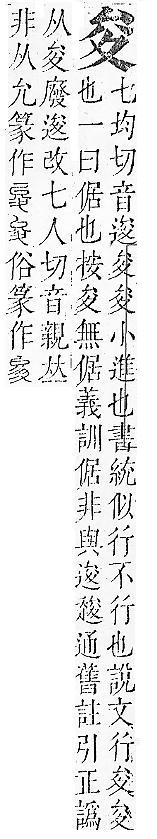 夋七均切音逡夋夋小進也書統似行不行也說文行夋夋
也一曰倨也按夋無倨義訓倨非與逡竣通舊註引正譌
从夋廢逡改七人切音親夶
非从允篆作俗篆作